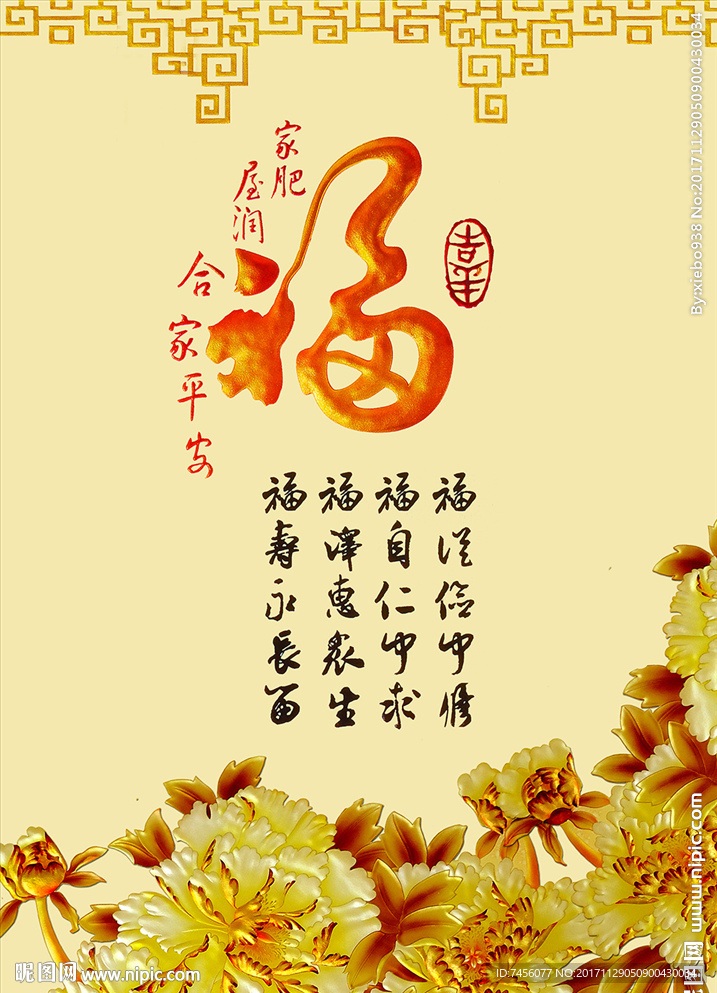 福
家肥
屋润
合家平安
福從儉中修
福自仁中求
福澤惠眾生
福壽永長留
昵图网 www.nipic.com
ID:7456077 NO:20171129050900430034
By:xiebo938 No:20171129050900430034
www.nipic.com
昵图网